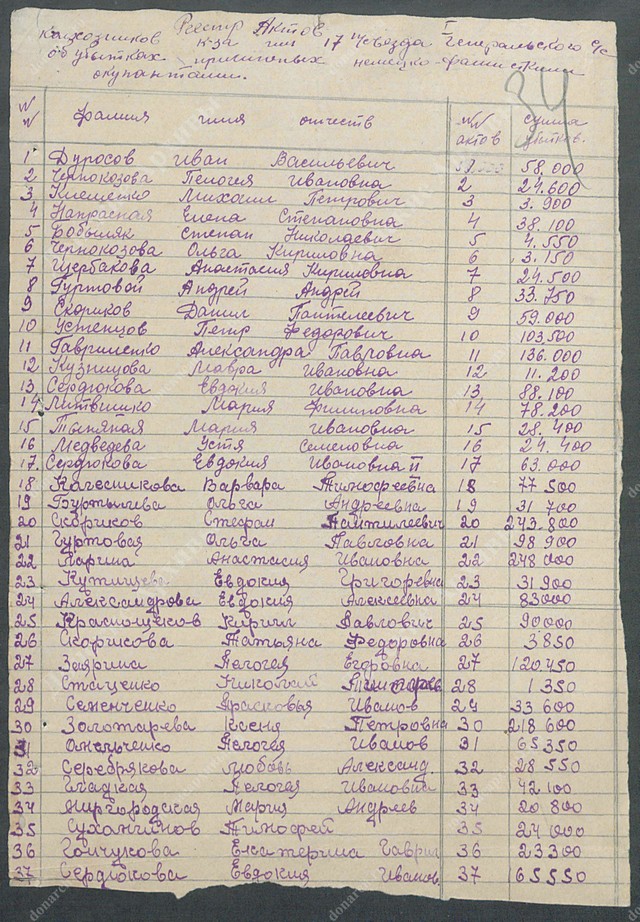 Реестр Актов
колхозников к-за им 17 Съезда Генеральского с/с
об убытках причиненых немецко-фашисткими
окупантами.
34
№ № фамилия имя отчеств №№ актов сумма убытков.
1 Дуросов Иван Васильевич 58.000
2 Чернокозова Пелогея Ивановна 2 24.600
3 Клещенко Михаил Петрович 3 3.900
4 Напрасная Елена Степановна 4 38.100
5 Бобыляк Степан Николаевич 5 4.550
6 Чернокозова Ольга Кириловна 6 3.150
7 Щербакова Анастасия Кириловна 7 24.500
8 Гуртовой Андрей Андрей 8 33.750
9 Скориков Данил Пантелеевич 9 59.000
10 Устенцов Петр Федорович 10 103.500
11 Гавриленко Александра Павловна 11 136.000
12 Кузницова Мавра Ивановна 12 11.200
13 Сердюкова Евдокия Ивановна 13 88.100
14 Литвинко Мария Филиповна 14 78.200
15 Мария Ивановна 15 28.400
16 Медведева Устя Семеловна 16 24.400
17. Сердюкова Евдокия Ивановна II 17 63.000
18 Калесникова Варвара Тимофеевна 18 77 500
19 Ольга Андреевна 19 31 700
20 Скориков Стефан Пантилеевич 20 243.800
21 Гуртовая Ольга Павловна 21 98 900
22 Ларина Анастасия Ивановна 22 248 000
23 Евдокия Григоревна 23 31 900
24 Александрова Евдокия Алексеевна 24 83000
25 Краснощеков Кирилл Павлович 25 90000
26 Скорикова Татьяна Федоровна 26 3850
27 Заярина Пелогея Егоровна 27 120.450
28 Стаценко Николай 28 1 350
29 Семенченко Прасковья Иванов 29 33 600
30 Золотарева Ксеня Петровна 30 218 600
31 Пелогея Иванов 31 65 350
32 Серебрякова Любовь Александ. 32 28 550
33 Гладкая Пелогея Ивановна 33 42 100
34 Миргородская Мария Андреев 34 20.800
35 Тимофей 35 24 000
36 Гончукова Екатерина Гаврил 36 23300
37 Сердюкова Евдокия Иванов. 37 65550